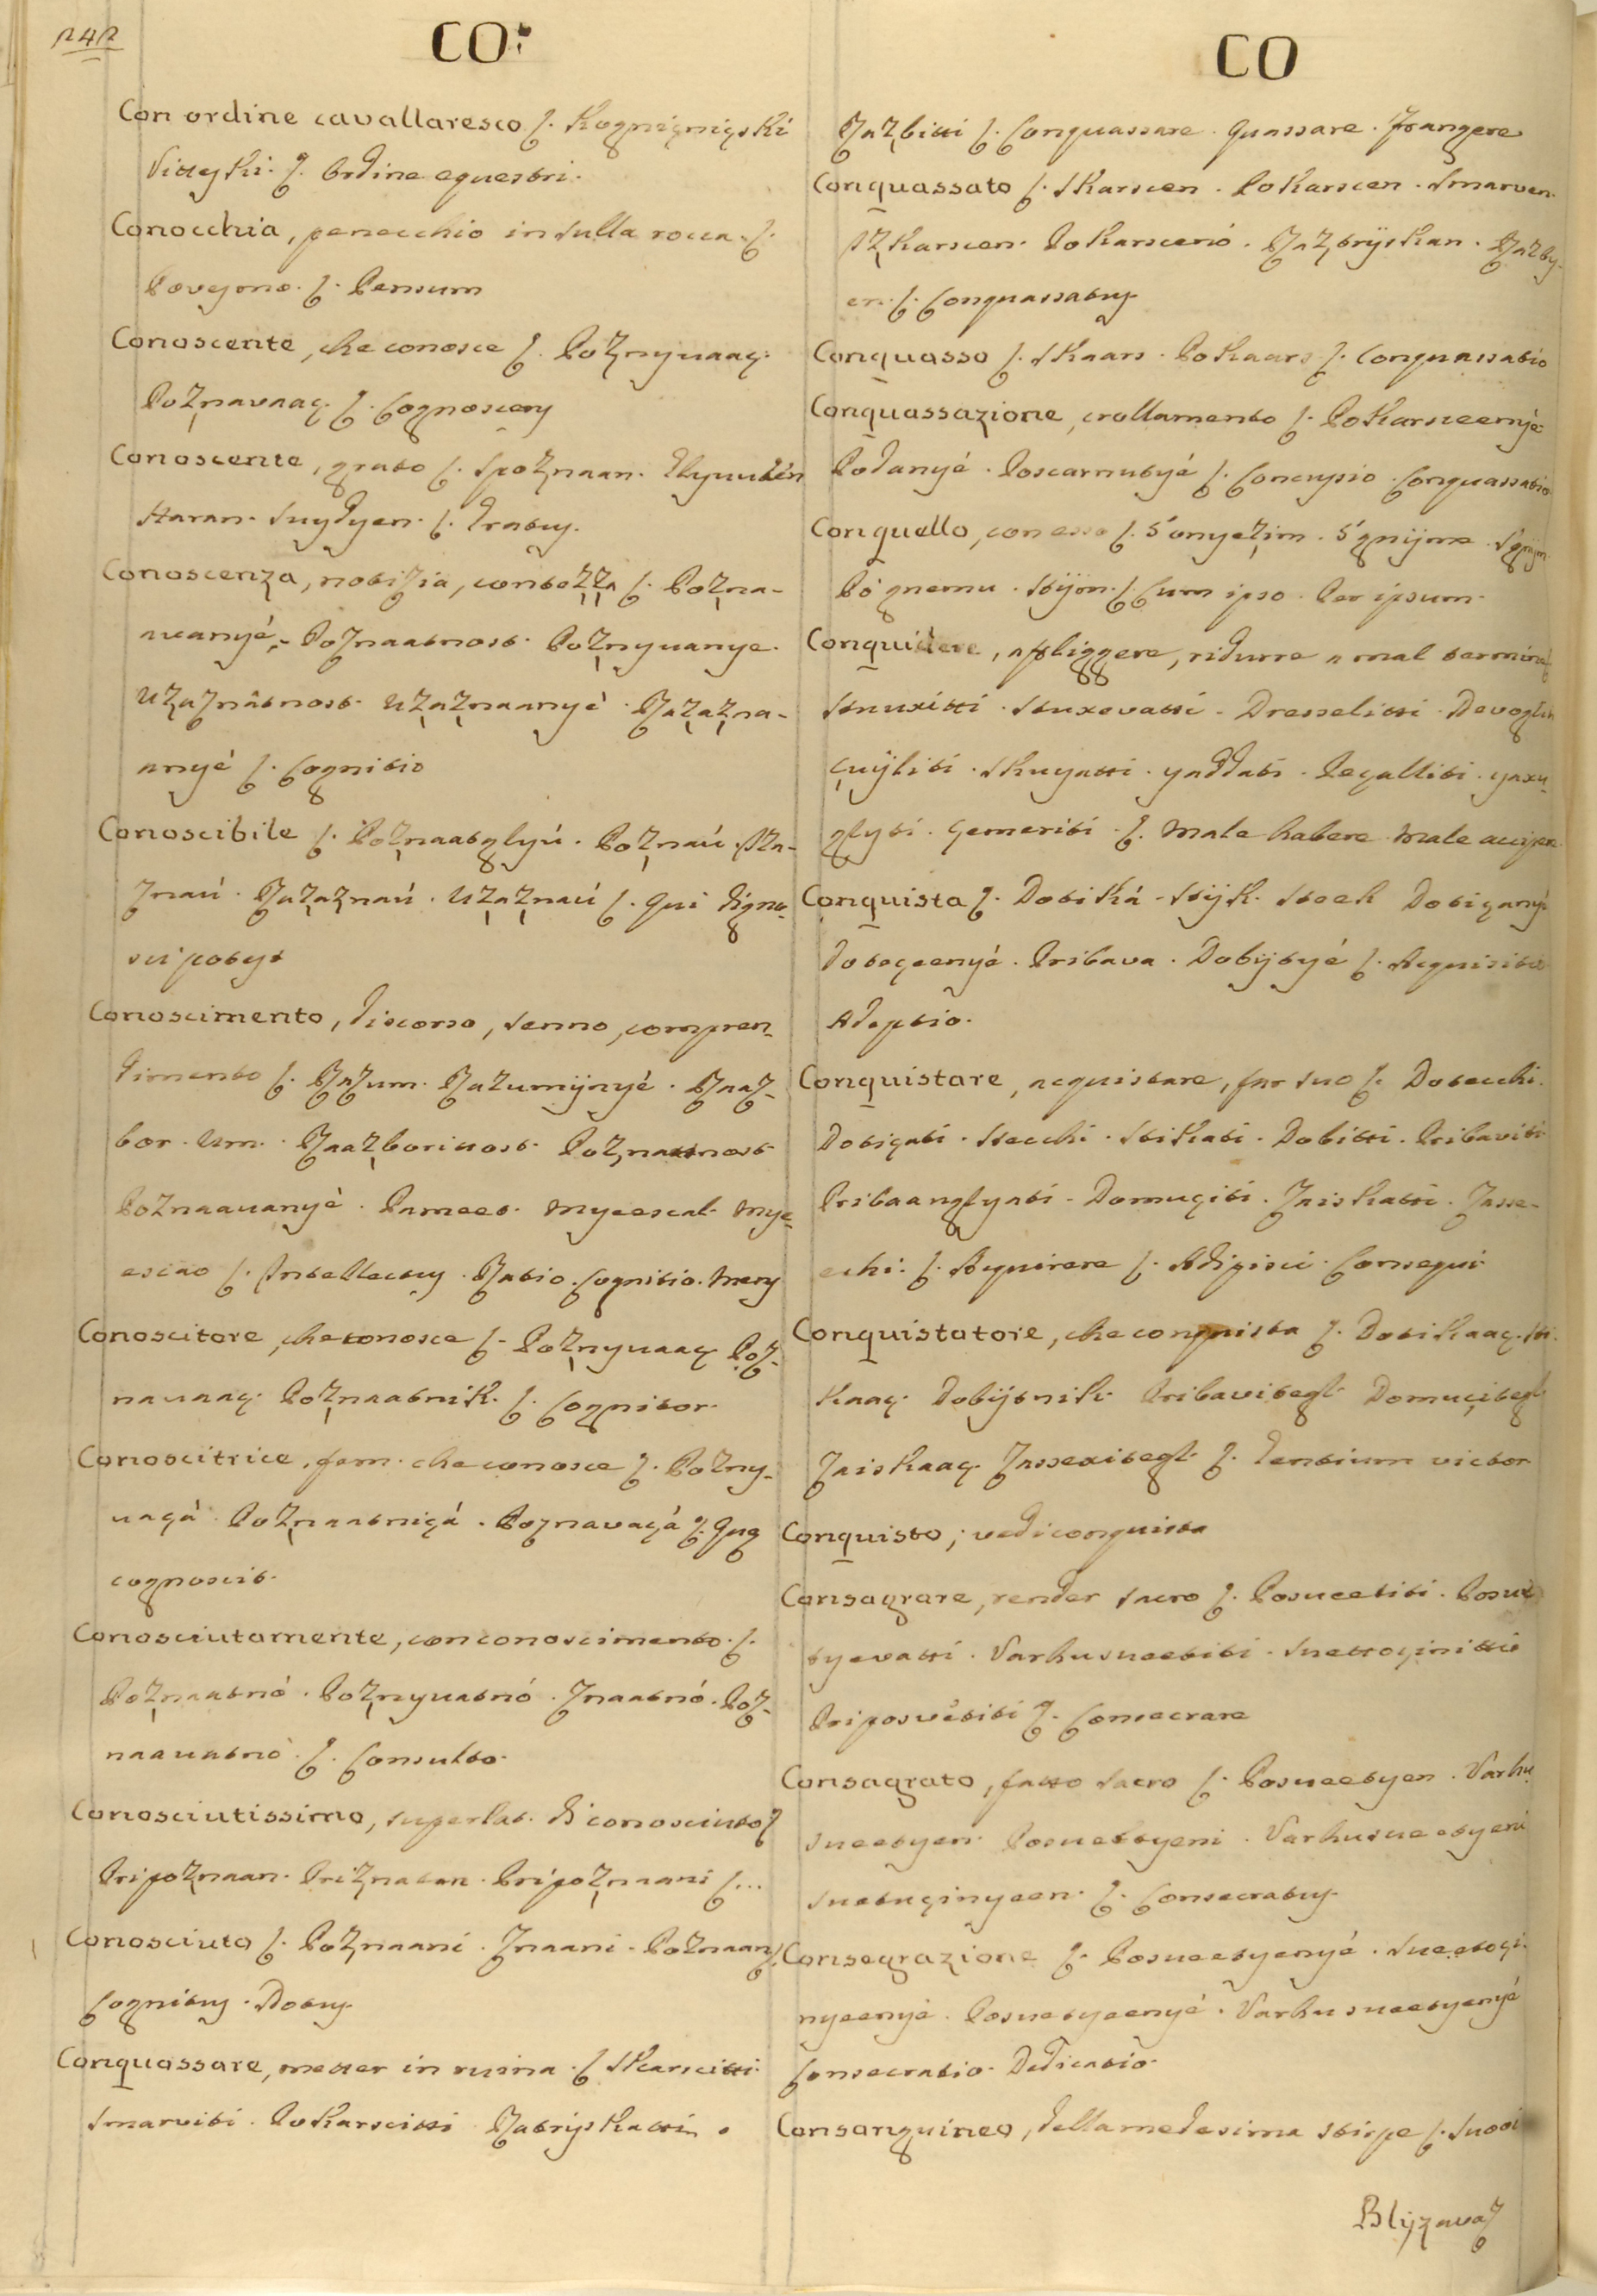 242
CO.
Con ordine cavallaresco ſ. Kogniçniçski
Vitteski. ſ. Ordine equestri.
Conocchia, penecchio in sulla rocca. ſ.
Povesmo. ſ. Pensum
Conoscente, che conosce ſ. Poznyvaaç.
Poznavaaç ſ. Cognoscens
Conoscente, grato ſ. Spoznaan.
Haran. ſ. Gratus.
Conoscenza, notizia, contezza ſ. Pozna-
vanyé. Poznaatnost. Poznyvanye.
Uzaznâtnost. Uzaznaanyé. Razazna-
anyé ſ. Cognitio
Conoscibile ſ. Poznaatglyú. Poznaú.
Znaú. Razaznaú. Uzaznaú ſ. Qui digno-
sci potest
Conoscimento, discorso, senno, compren-
dimento ſ. Razum. Razumijnyé. Raaz-
bor. Um. Raazboritost. Poznattnost
Poznaavanyé. Pameet. Myeescal. Mye-
escao ſ. Intellectus. Ratio. Cognitio. Mens
Conoscitore, che conosce ſ. Poznyvaaç Poz-
navaaç. Poznaatnik. ſ. Cognitor.
Conoscitrice, fem. che conosce ſ. Pozny-
vaçá. Poznaatniçá. Poznavaçá ſ. Quę
cognoscit.
Conosciutamente, con conoscimento. ſ.
Poznaatnó. Poznyvatnó. Znaatnó. Poz-
naavatnó. ſ. Consulto.
Conosciutissimo, superlat. di conosciuto ſ
Pripoznaan. Priznatan. Pripoznaani ſ...
Conosciuto ſ. Poznaani. Znaani. Poznaan ſ.
Cognitus. Notus.
Conquassare, metter in ruina. ſ Skarscitti.
Smarviti. Pokarscitti Ratrijskatti.
CO
Razbitti ſ. Conquassare. Quassare. Frangere
Conquassato ſ. Skarscen. Pokarscen. Smarven.
Izkarscen. Pokarscenó. Razbrijskan. Razby-
en. ſ. Conquassatus
Conquasso ſ. Skaars. Pokaars ſ. Conquassatio
Conquassazione, crollamento ſ. Pokarsceenyé
Podanyé. Poscarnutyé ſ. Concussio. Conquassatio.
Con quello, con esso ſ. S'onyezim. S'gnijme. S'gnijm.
Po'gnemu. Stijm. ſ Cum ipso. Per ipsum.
Conquidere, affliggere, ridurre a mal termine ſ
Stuxitti. Stuxevatti. Dresselitti.
Cuijliti. Skuyatti. yaddati. Peçalliti.
Çemeriti. ſ. Male habere. Male accipere.
Conquista ſ. Dotiká. Stijk. Steck Dotiçanyé
Doteçeenyé. Pribava. Dobijtyé ſ. Acquisitio
Adeptio.
Conquistare, acquistare, far suo ſ. Dotecchi.
Dotiçati. Stecchi. Stikati. Dobitti. Pribaviti
Pribaanglyati. Domuçiti. Zaiskatti. Zasse-
echi. ſ. Acquirere ſ. Adipisci. Consequi.
Conquistatore, che conquista ſ. Dotikaaç. Sti-
kaaç. Dobijtnik. Pribavitegl. Domuçitegl
Zaiskaaç. Zassexitegl. ſ. Gentium victor
Conquisto; vedi conquista
Consagrare, render sacro ſ. Posveetiti. Posve-
tyevatti. Varhusveetiti. Svettoçinitti
Priposvetiti ſ. Consecrare
Consagrato, fatto sacro ſ. Posveetyen. Varhu-
sveetyen. Posveetyeni. Varhusveetyeni
Svetuçinyeen. ſ. Consecratus.
Consegrazione ſ. Posveetyenyé. Sveetoçi-
nyeenyé. Posvetyeenyé. Varhusveetyenyé
Consecratio. Dedicatio.
Consanguineo, della medesima stirpe ſ. Svooi
Blijzavaz